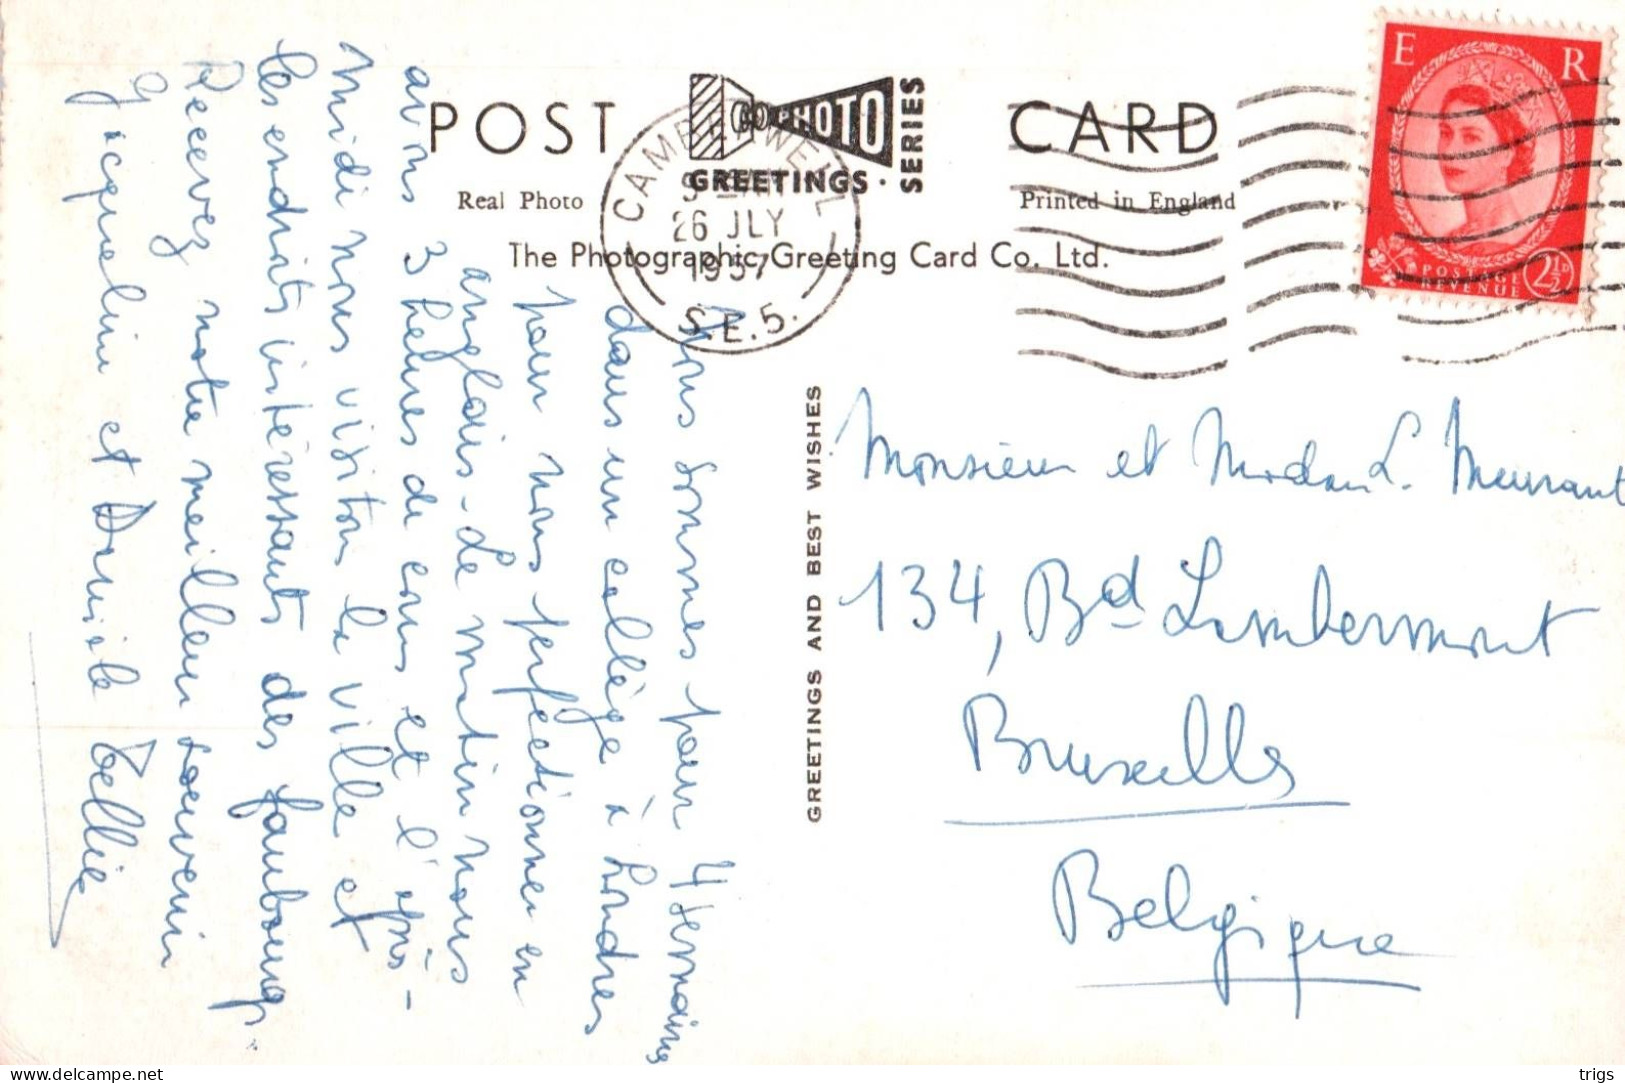 POST CARD
GREETINGS · PHOTO SERIES
Real Photo
Printed in England
The Photographic Greeting Card Co. Ltd.
CAMBERWELL
26 JLY
1957
S.E.5.
E R
POSTAGE
REVENUE
2½D
GREETINGS AND BEST WISHES
Nous sommes pour 4 semaines
dans un collège à Londres
pour nous perfectionner en
anglais. Le matin nous
avons 3 heures de cours et l'après-
midi nous visitons la ville et
les endroits intéressants des faubourgs.
Recevez notre meilleur souvenir
Jacqueline et
Monsieur et Madame L. Meurant
134, Bd Lambermont
Bruxelles
Belgique
delcampe.net
trigs